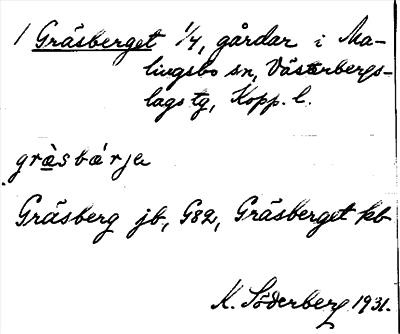 1 Gräsberget 1/4, gårdar i Ma-
lingsbo sn, Västerbergs-
lags tg, Kopp. l.
grä̀sbä́rja
Gräsberg jb, G82, Gräsberget kb
K. Söderberg 1931.